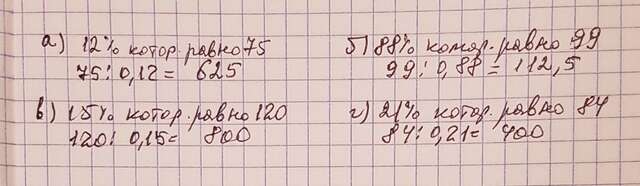 а) 12% котор. равно 75
75 : 0,12 = 625
б) 88% котор. равно 99
99 : 0,88 = 112,5
в) 15% котор. равно 120
120 : 0,15 = 800
г) 21% котор. равно 84
84 : 0,21 = 400